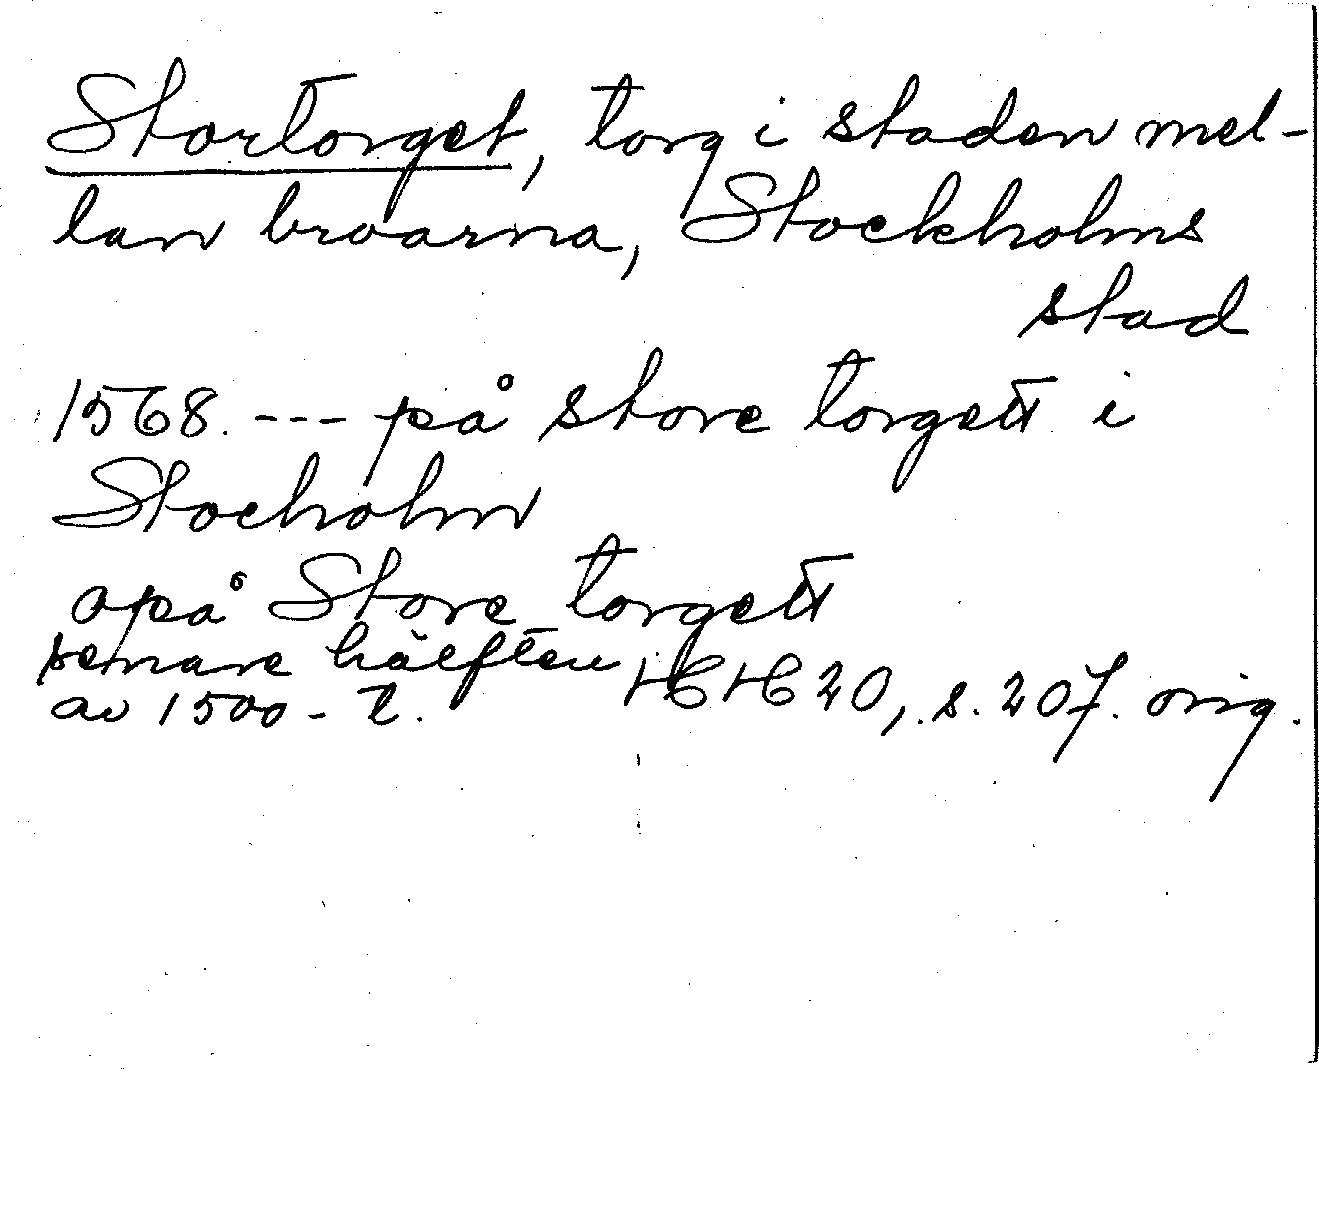 Stortorget, torg i staden mel-
lan broarna, Stockholms
stad
1568. --- på store torgett i
Stocholm
opå Store torgett
senare hälften
av 1500-t. HH 20, s. 207. orig.